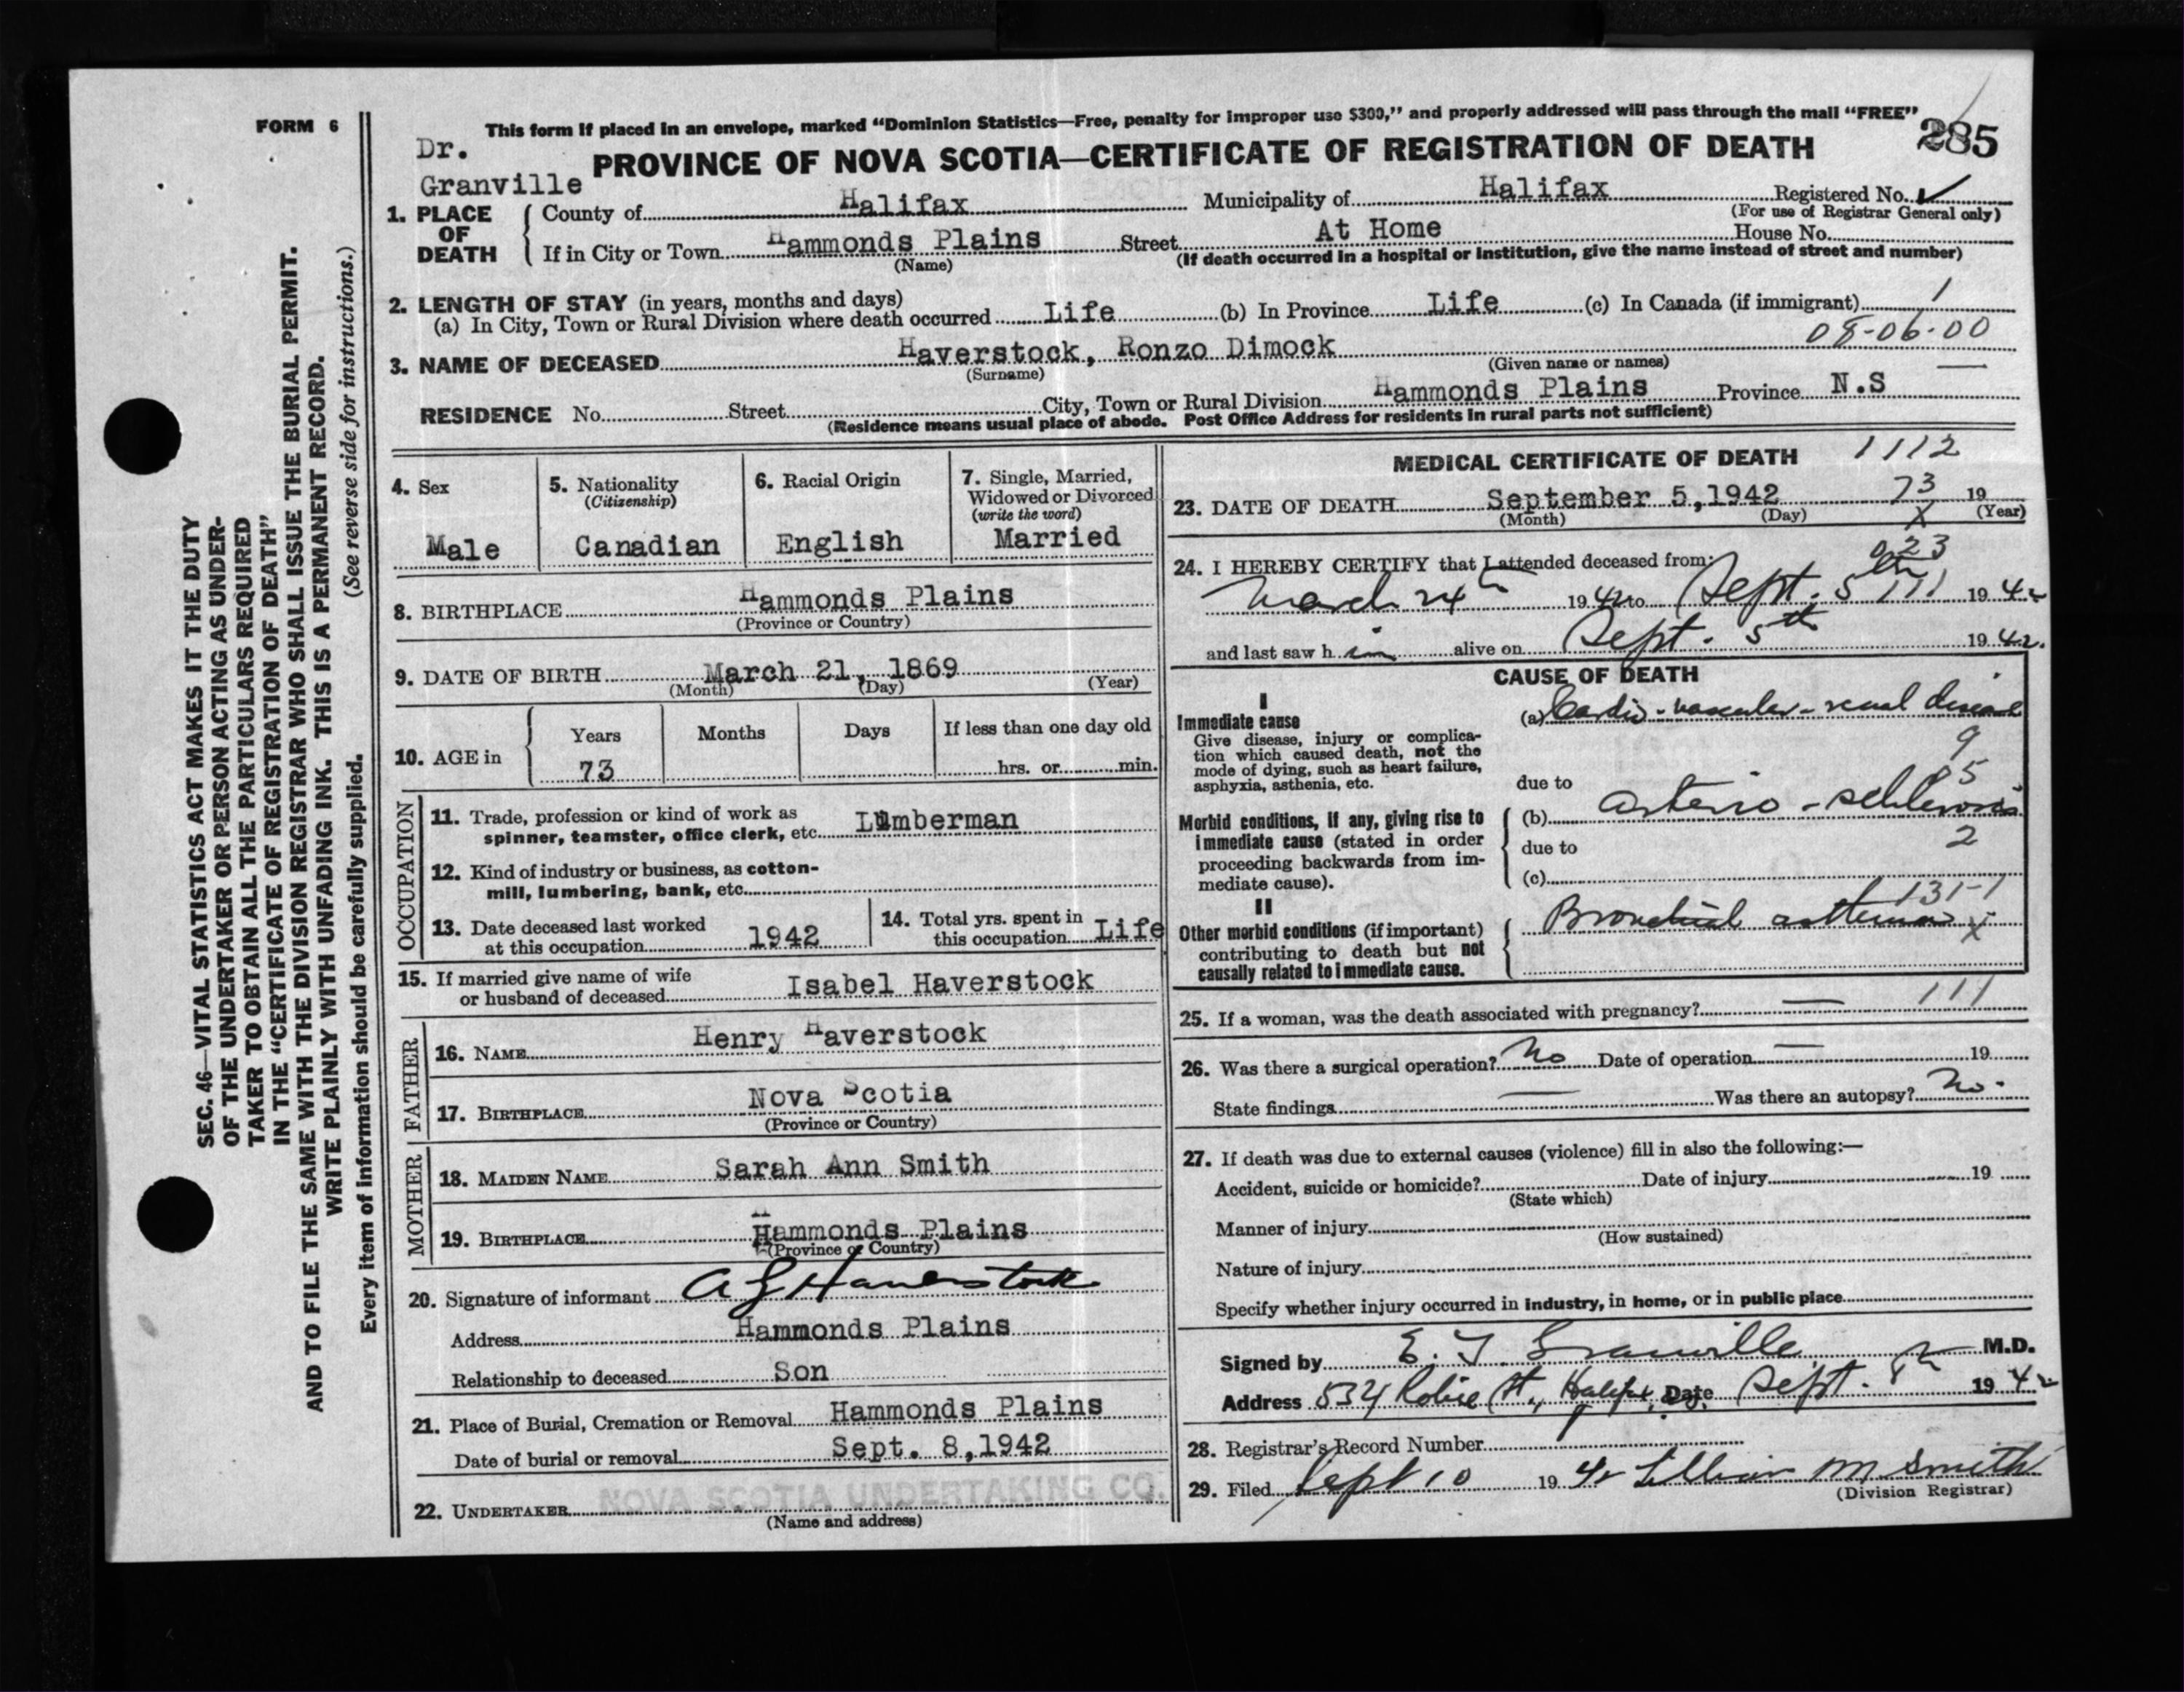 FORM 6
This form if placed in an envelope, marked "Dominion Statistics—Free, penalty for improper use $300," and properly addressed will pass through the mail "FREE"
285
Dr.
Granville
PROVINCE OF NOVA SCOTIA—CERTIFICATE OF REGISTRATION OF DEATH
1. PLACE OF DEATH
County of Halifax Municipality of Halifax Registered No. ✓
(For use of Registrar General only)
If in City or Town Hammonds Plains Street At Home House No.
(Name) (If death occurred in a hospital or institution, give the name instead of street and number)
2. LENGTH OF STAY (in years, months and days)
(a) In City, Town or Rural Division where death occurred Life (b) In Province Life (c) In Canada (if immigrant) 1
08-06-00
3. NAME OF DECEASED Haverstock, Ronzo Dimock
(Surname) (Given name or names)
RESIDENCE No. Street City, Town or Rural Division Hammonds Plains Province N.S
(Residence means usual place of abode. Post Office Address for residents in rural parts not sufficient)
4. Sex
Male
5. Nationality
(Citizenship)
Canadian
6. Racial Origin
English
7. Single, Married,
Widowed or Divorced
(write the word)
Married
8. BIRTHPLACE Hammonds Plains
(Province or Country)
9. DATE OF BIRTH March 21, 1869
(Month) (Day) (Year)
10. AGE in
Years Months Days If less than one day old
73 hrs. or min.
OCCUPATION
11. Trade, profession or kind of work as
spinner, teamster, office clerk, etc. Lumberman
12. Kind of industry or business, as cotton-
mill, lumbering, bank, etc.
13. Date deceased last worked
at this occupation 1942
14. Total yrs. spent in
this occupation Life
15. If married give name of wife
or husband of deceased Isabel Haverstock
FATHER
16. NAME Henry Haverstock
17. BIRTHPLACE Nova Scotia
(Province or Country)
MOTHER
18. MAIDEN NAME Sarah Ann Smith
19. BIRTHPLACE Hammonds Plains
(Province or Country)
20. Signature of informant A G Haverstock
Address Hammonds Plains
Relationship to deceased Son
21. Place of Burial, Cremation or Removal Hammonds Plains
Date of burial or removal Sept. 8, 1942
22. UNDERTAKER NOVA SCOTIA UNDERTAKING CO.
(Name and address)
MEDICAL CERTIFICATE OF DEATH 1112
23. DATE OF DEATH September 5, 1942 73 19
(Month) (Day) X (Year)
023
24. I HEREBY CERTIFY that I attended deceased from:
March 24th 1942 to Sept. 5th 111 1942
and last saw him alive on Sept. 5th 1942.
CAUSE OF DEATH
I
Immediate cause
Give disease, injury or complica-
tion which caused death, not the
mode of dying, such as heart failure,
asphyxia, asthenia, etc.
(a) Cardio-vascular-renal disease
9
5
due to
Morbid conditions, if any, giving rise to
immediate cause (stated in order
proceeding backwards from im-
mediate cause).
(b) Arterio-schlerosis
due to 2
(c)
131-1
II
Other morbid conditions (if important)
contributing to death but not
causally related to immediate cause.
Bronchial asthma X
25. If a woman, was the death associated with pregnancy? — 111
26. Was there a surgical operation? No Date of operation — 19
State findings — Was there an autopsy? No.
27. If death was due to external causes (violence) fill in also the following:—
Accident, suicide or homicide? Date of injury 19
(State which)
Manner of injury
(How sustained)
Nature of injury
Specify whether injury occurred in industry, in home, or in public place
Signed by E. T. Granville M.D.
Address 534 Robie St., Halifax, N.S. Date Sept. 8th 1942
28. Registrar's Record Number
29. Filed Sept 10 1942 Lillian M Smith
(Division Registrar)
SEC. 46—VITAL STATISTICS ACT MAKES IT THE DUTY
OF THE UNDERTAKER OR PERSON ACTING AS UNDER-
TAKER TO OBTAIN ALL THE PARTICULARS REQUIRED
IN THE "CERTIFICATE OF REGISTRATION OF DEATH"
AND TO FILE THE SAME WITH THE DIVISION REGISTRAR WHO SHALL ISSUE THE BURIAL PERMIT.
WRITE PLAINLY WITH UNFADING INK. THIS IS A PERMANENT RECORD.
(See reverse side for instructions.)
Every item of information should be carefully supplied.